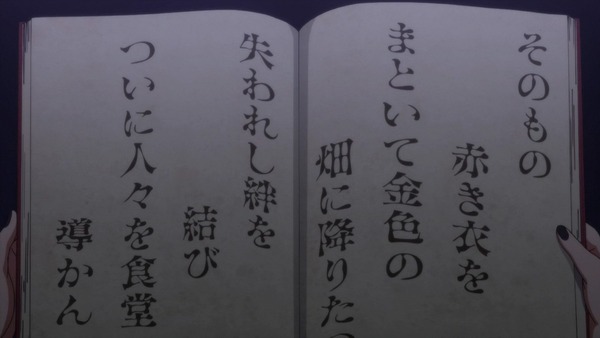 そのもの
赤き衣を
まといて金色の
畑に降りたつ
失われし絆を
結び
ついに人々を食堂
導かん